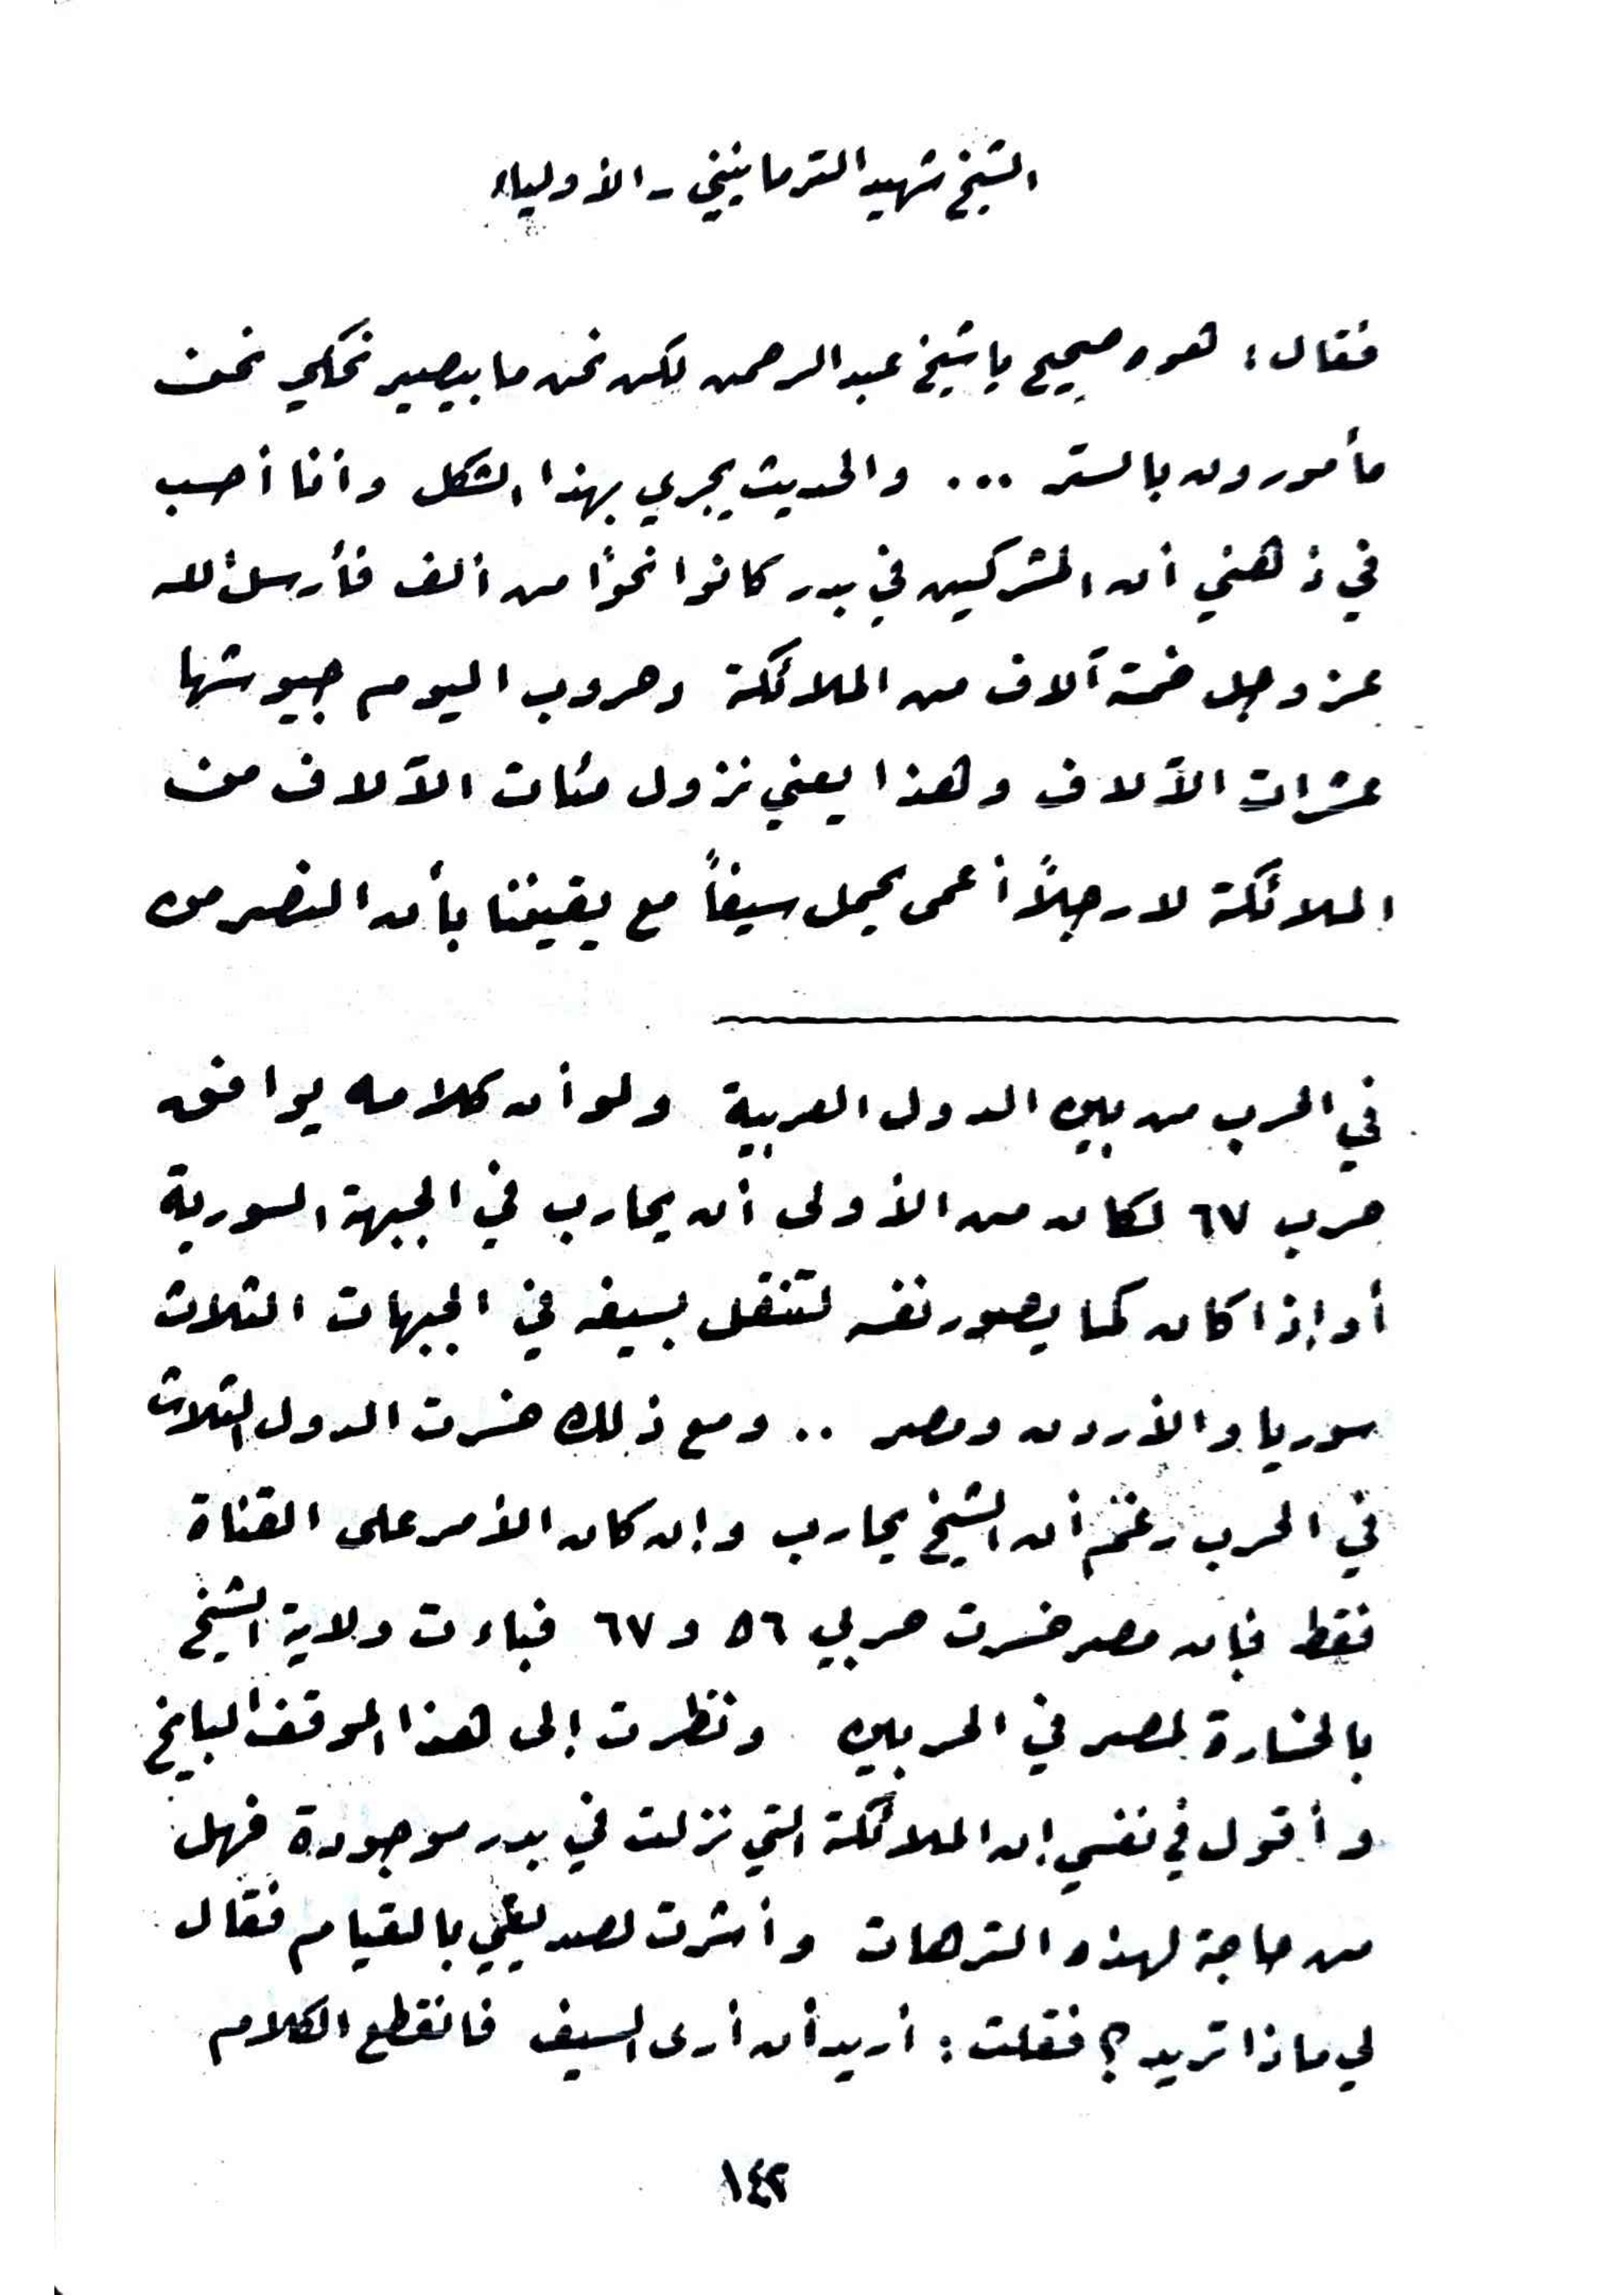 الشيخ شهيد الترمانيني - الأولياء
فقال: هوه صحيح يا شيخ عبد الرحمن لكن نحن ما بيصير نحكي نحن
مأمورون بالستر ... والحديث يجري بهذا الشكل وأنا أحسب
في ذهني أن المشركين في بدر كانوا نحواً من ألف فأرسل الله
عز وجل خمسة آلاف من الملائكة وحروب اليوم جيوشها
عشرات الآلاف وهذا يعني نزول مئات الآلاف من
الملائكة لا رجلاً أعمى يحمل سيفاً مع يقيننا بأن النصر من
في الحرب من بين الدول العربية ولو أن كلامه يوافق
حرب ٦٧ لكان من الأولى أن يحارب في الجبهة السورية
أو إذا كان كما يصور نفسه لتنقل بسيفه في الجبهات الثلاث
سوريا والأردن ومصر .. ومع ذلك خسرت الدول الثلاث
في الحرب رغم أن الشيخ يحارب وإن كان الأمر على القناة
فقط فإن مصر خسرت حربي ٥٦ و ٦٧ فباءت ولاية الشيخ
بالخسارة لمصر في الحربين ونظرت إلى هذا الموقف البايخ
وأقول في نفسي إن الملائكة التي نزلت في بدر موجودة فهل
من حاجة لهذه الترهات وأشرت لصديقي بالقيام فقال
لي ماذا تريد؟ فقلت: أريد أن أرى السيف فانقطع الكلام
١٤٢